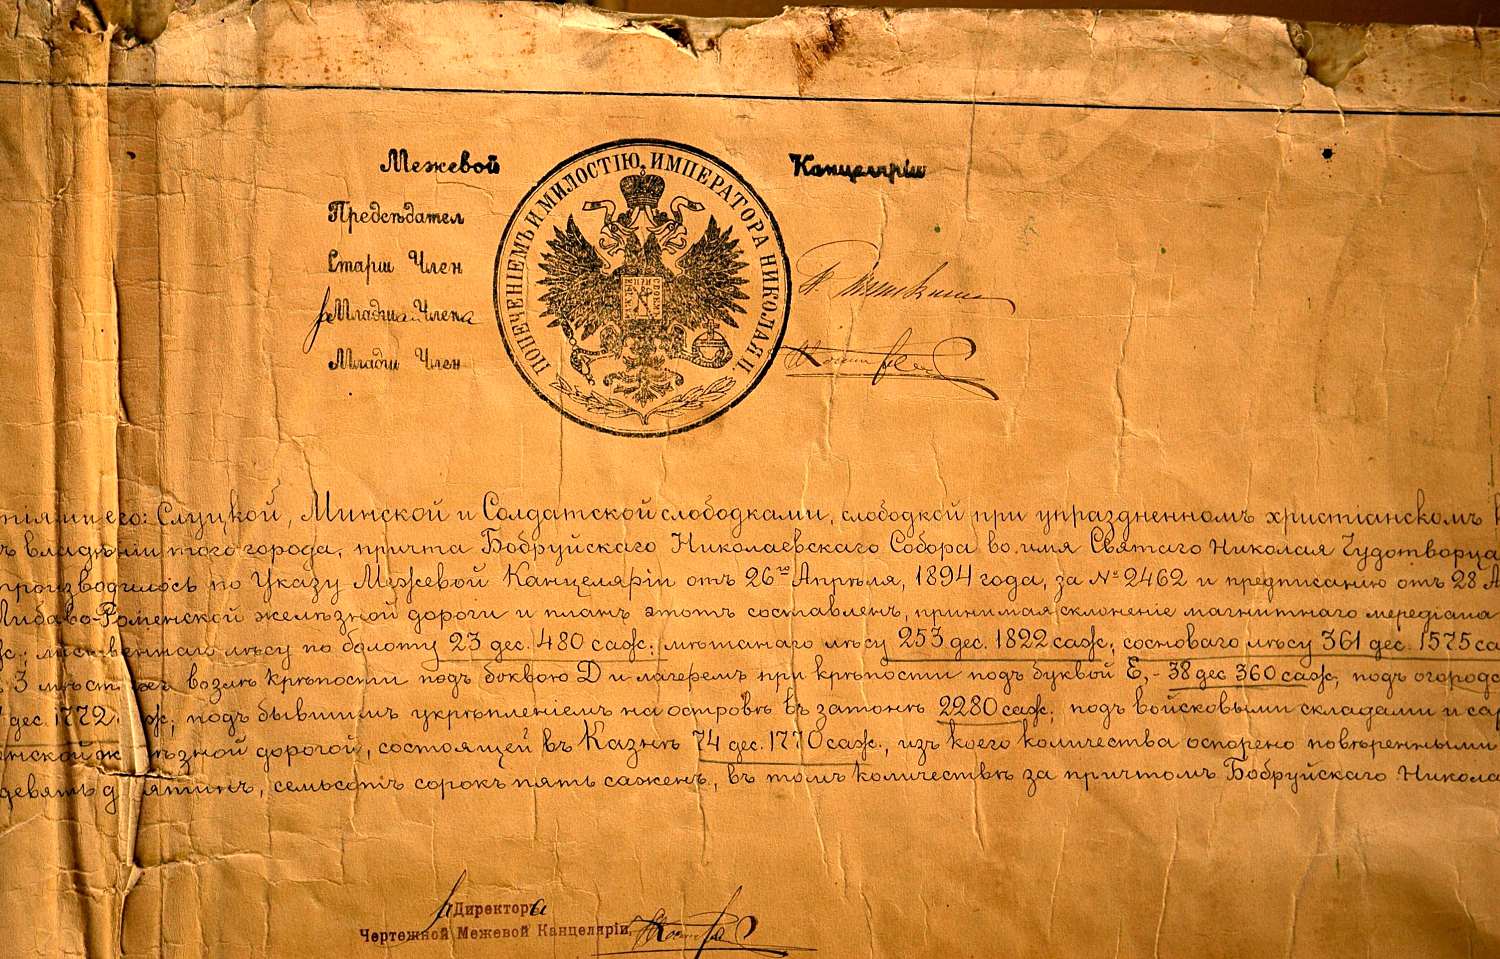 Межевой Канцеляріи
ПОПЕЧЕНІЕМЪ И МИЛОСТІЮ ИМПЕРАТОРА НИКОЛАЯ II.
Предсѣдател
Старш Член
Младша Члена
Младш Член
Слуцкой, Минской и Солдатской слободками, слободкой при упраздненномъ христіанскомъ
владѣніи того города, причта Бобруйскаго Николаевскаго Собора во имя Святаго Николая Чудотворца
производилось по Указу Межевой Канцеляріи отъ 26го Апрѣля, 1894 года, за № 2462 и предписанію отъ 28
Либаво-Роменской желѣзной дороги и планъ этотъ составленъ, принимая склоненіе магнитнаго меридіана
лиственнаго лѣсу по болоту 23 дес. 480 саж.; мѣшанаго лѣсу 253 дес. 1822 саж.; сосноваго лѣсу 361 дес. 1575
3 возлѣ крѣпости подъ буквою D и лагеремъ при крѣпости подъ буквой E, - 38 дес 360 саж; подъ
дес. 1772 подъ бывшимъ укрѣпленіемъ на островѣ въ затонѣ 2280 саж; подъ войсковыми складами и
дорогой, состоящей въ Казнѣ 74 дес. 1770 саж., изъ коего количества оспорено повѣренными
девять семьсотъ сорокъ пять сажень, въ томъ количествѣ за причтомъ Бобруйскаго
Директора
Чертежной Межевой Канцеляріи,